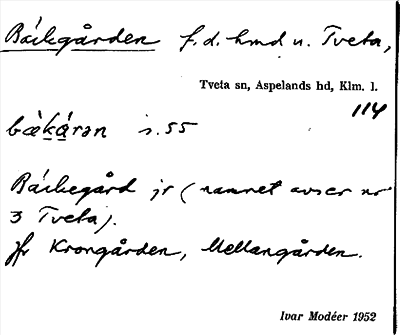 Bäckgården f.d. hmd u. Tveta,
Tveta sn, Aspelands hd, Klm. l.
114
bæ̀ḵá̱rən s. 55
Bäckegård jr (namnet avser nr
3 Tveta).
Jfr Krongården, Mellangården.
Ivar Modéer 1952